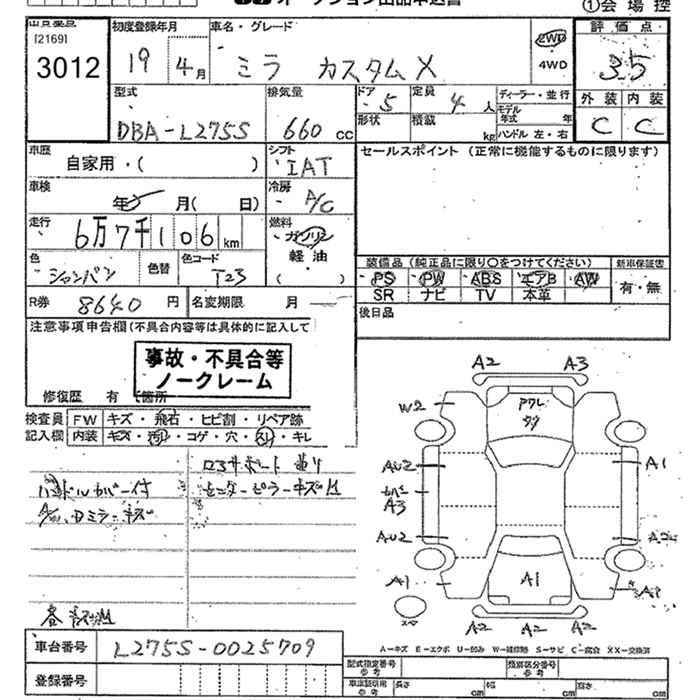 ①会場控
出品番号
[2169]
3012
初度登録年月
19 4月
車名・グレード
ミラ カスタムX
2WD
4WD
評価点
3.5
型式
DBA-L275S
排気量
660 cc
ドア
5
定員
4人
ディーラー・並行
モデル年式 年
形状
積載 kg
ハンドル 左・右
外装 内装
C C
車歴
自家用・( )
シフト
IAT
セールスポイント (正常に機能するものに限ります)
車検
年 月( 日)
冷房
A/C
走行
6万7千106km
燃料
ガソリン
軽油
( )
色
シャンパン
色替
色コード
T23
装備品 (純正品に限り○をつけてください)
新車保証書
PS PW ABS エアB AW
SR ナビ TV 本革
有・無
R券
8640円
名変期限 月
後日品
注意事項申告欄(不具合内容等は具体的に記入して
事故・不具合等
ノークレーム
修復歴 有 箇所
検査員
記入欄
FW キズ・飛石・ヒビ割・リペア跡
内装 キズ・汚れ・コゲ・穴・スレ・キレ
ハンドルカバー付
センターピラーキズ
A2 A3
W2
A1
AU2
A3
AU2
A1
A1
A2 A2 A2
A-キズ E-エクボ U-凹み W-補修跡 S-サビ C-腐食 XX-交換済
車台番号
L275S-0025709
登録番号
型式指定番号
参考
類別区分番号
参考
車庫証明用
参考
長さ cm 幅 cm 高さ cm